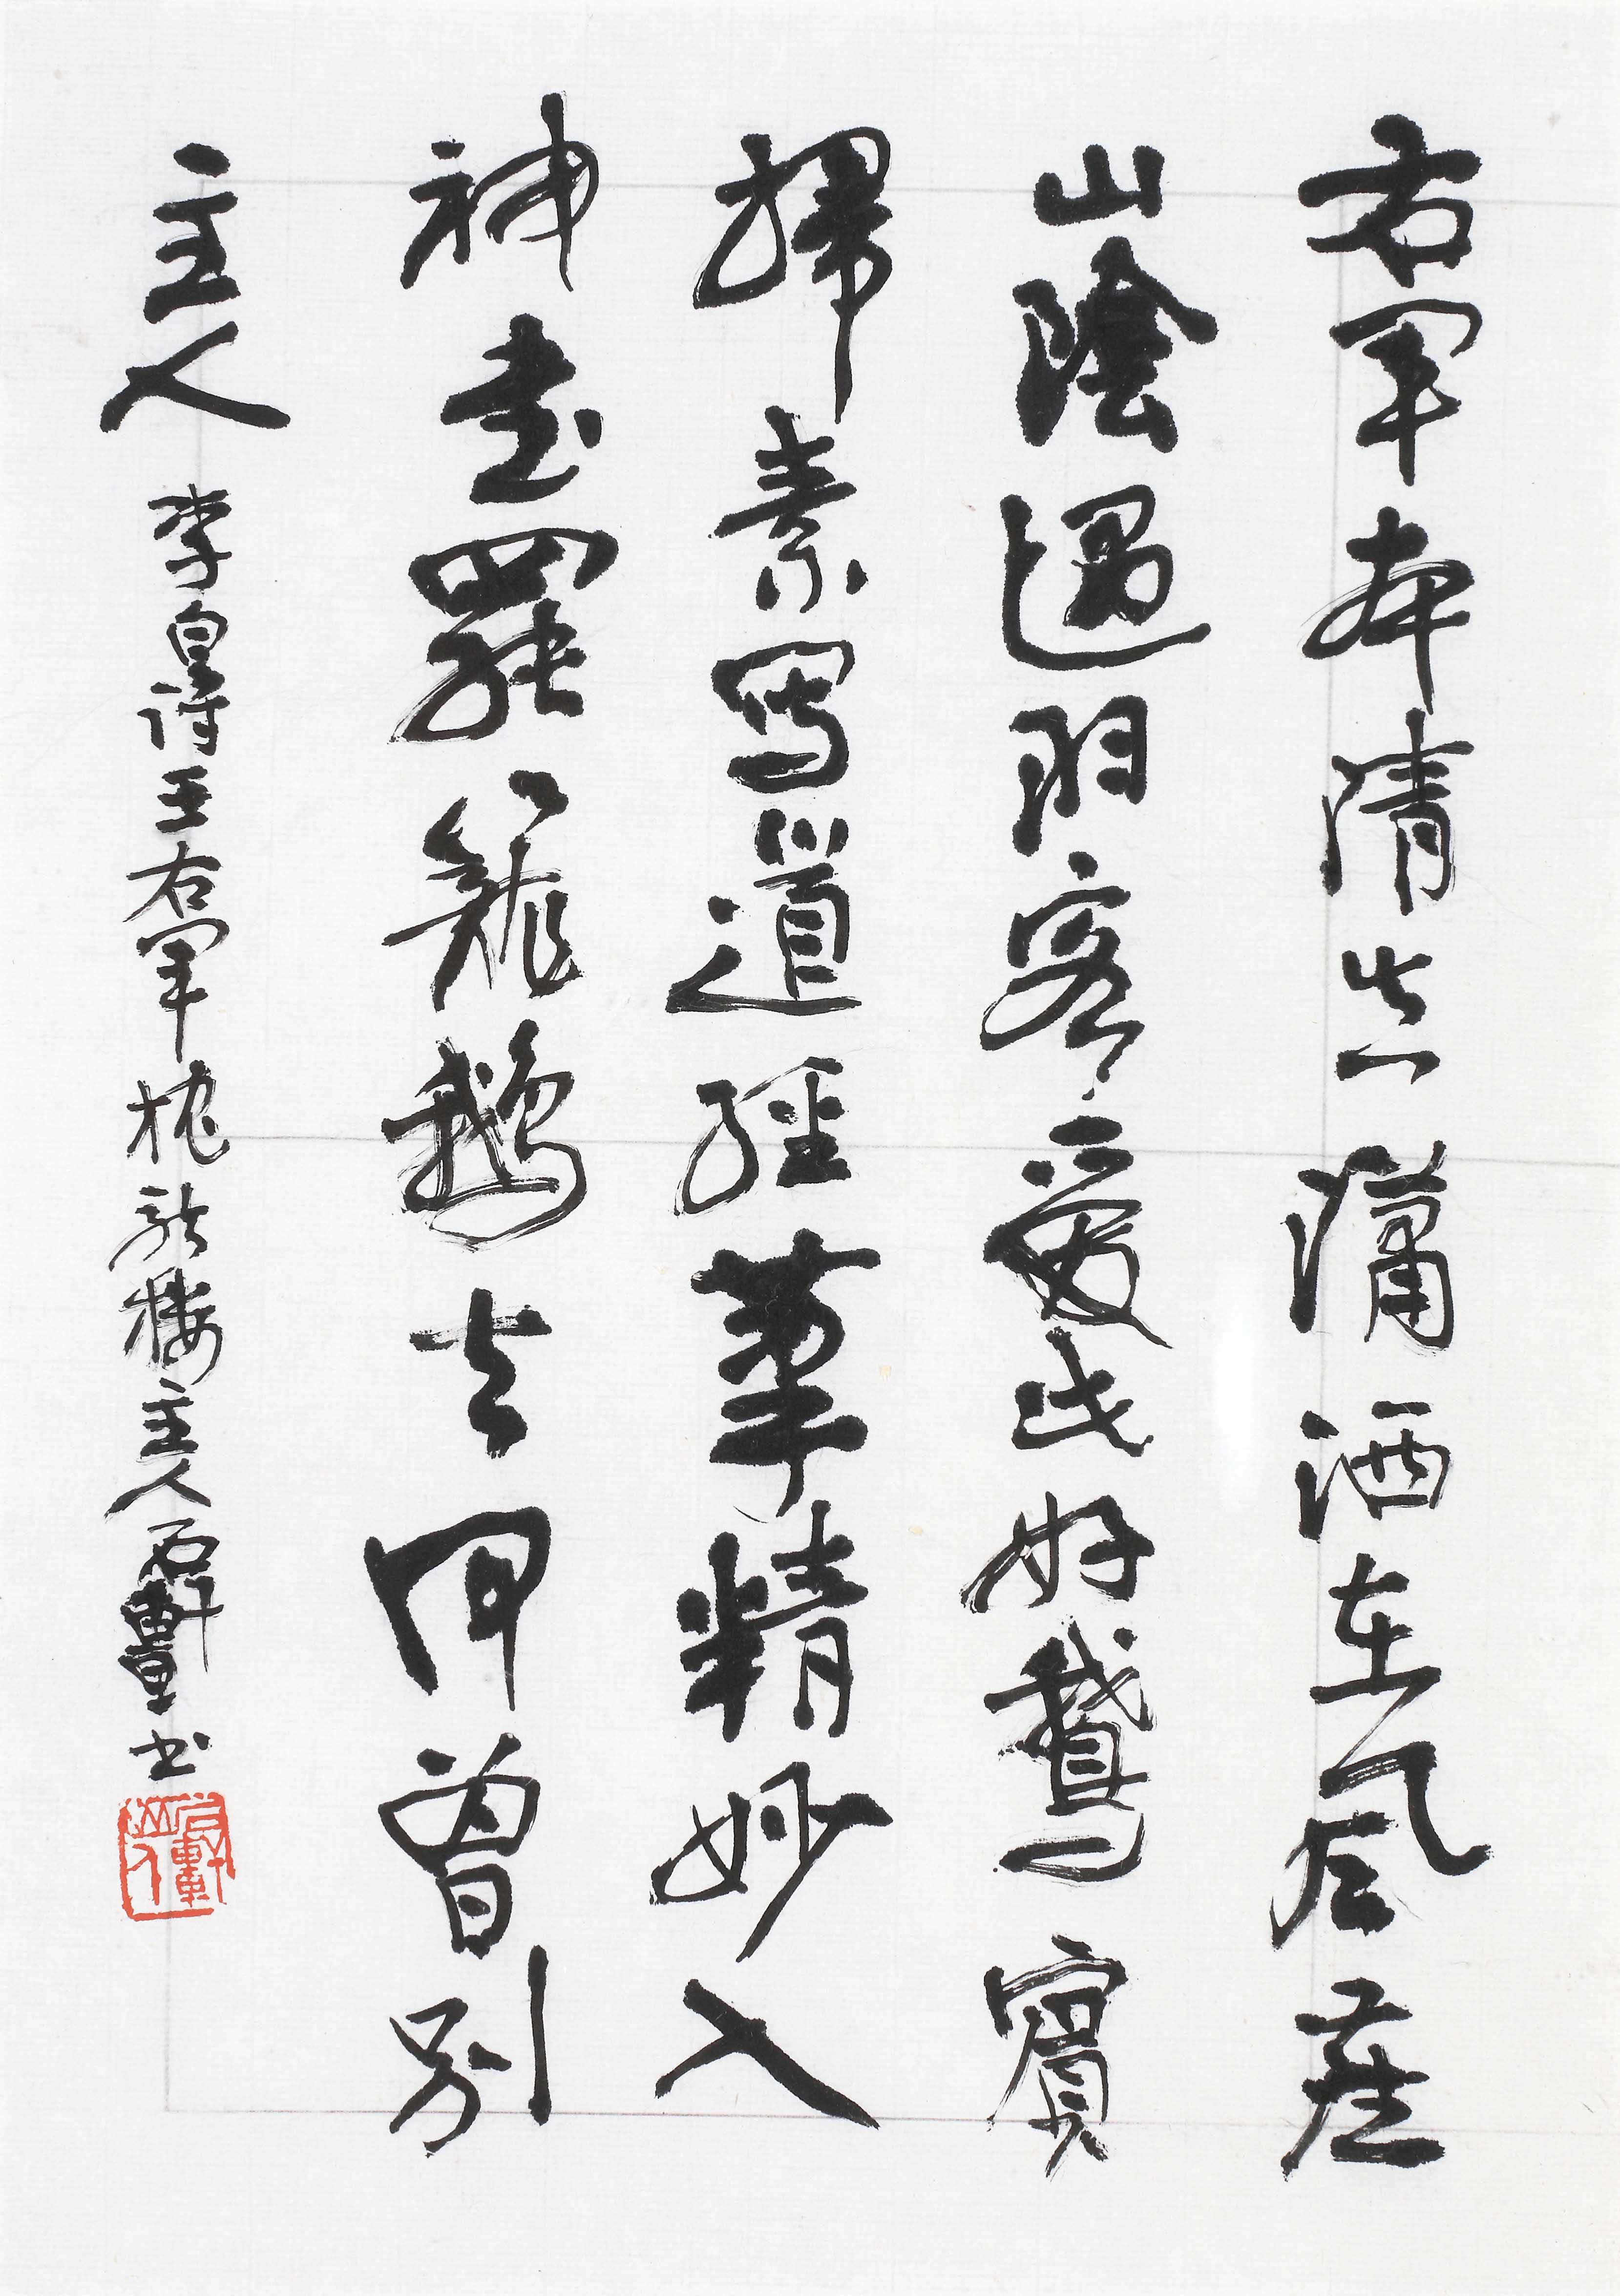 右軍本清真瀟洒在風塵
山陰遇羽客愛此好鵝賓
掃素寫道經筆精妙入
神書罷籠鵝去何曾別
主人 李白詩王右軍 樓主人 書